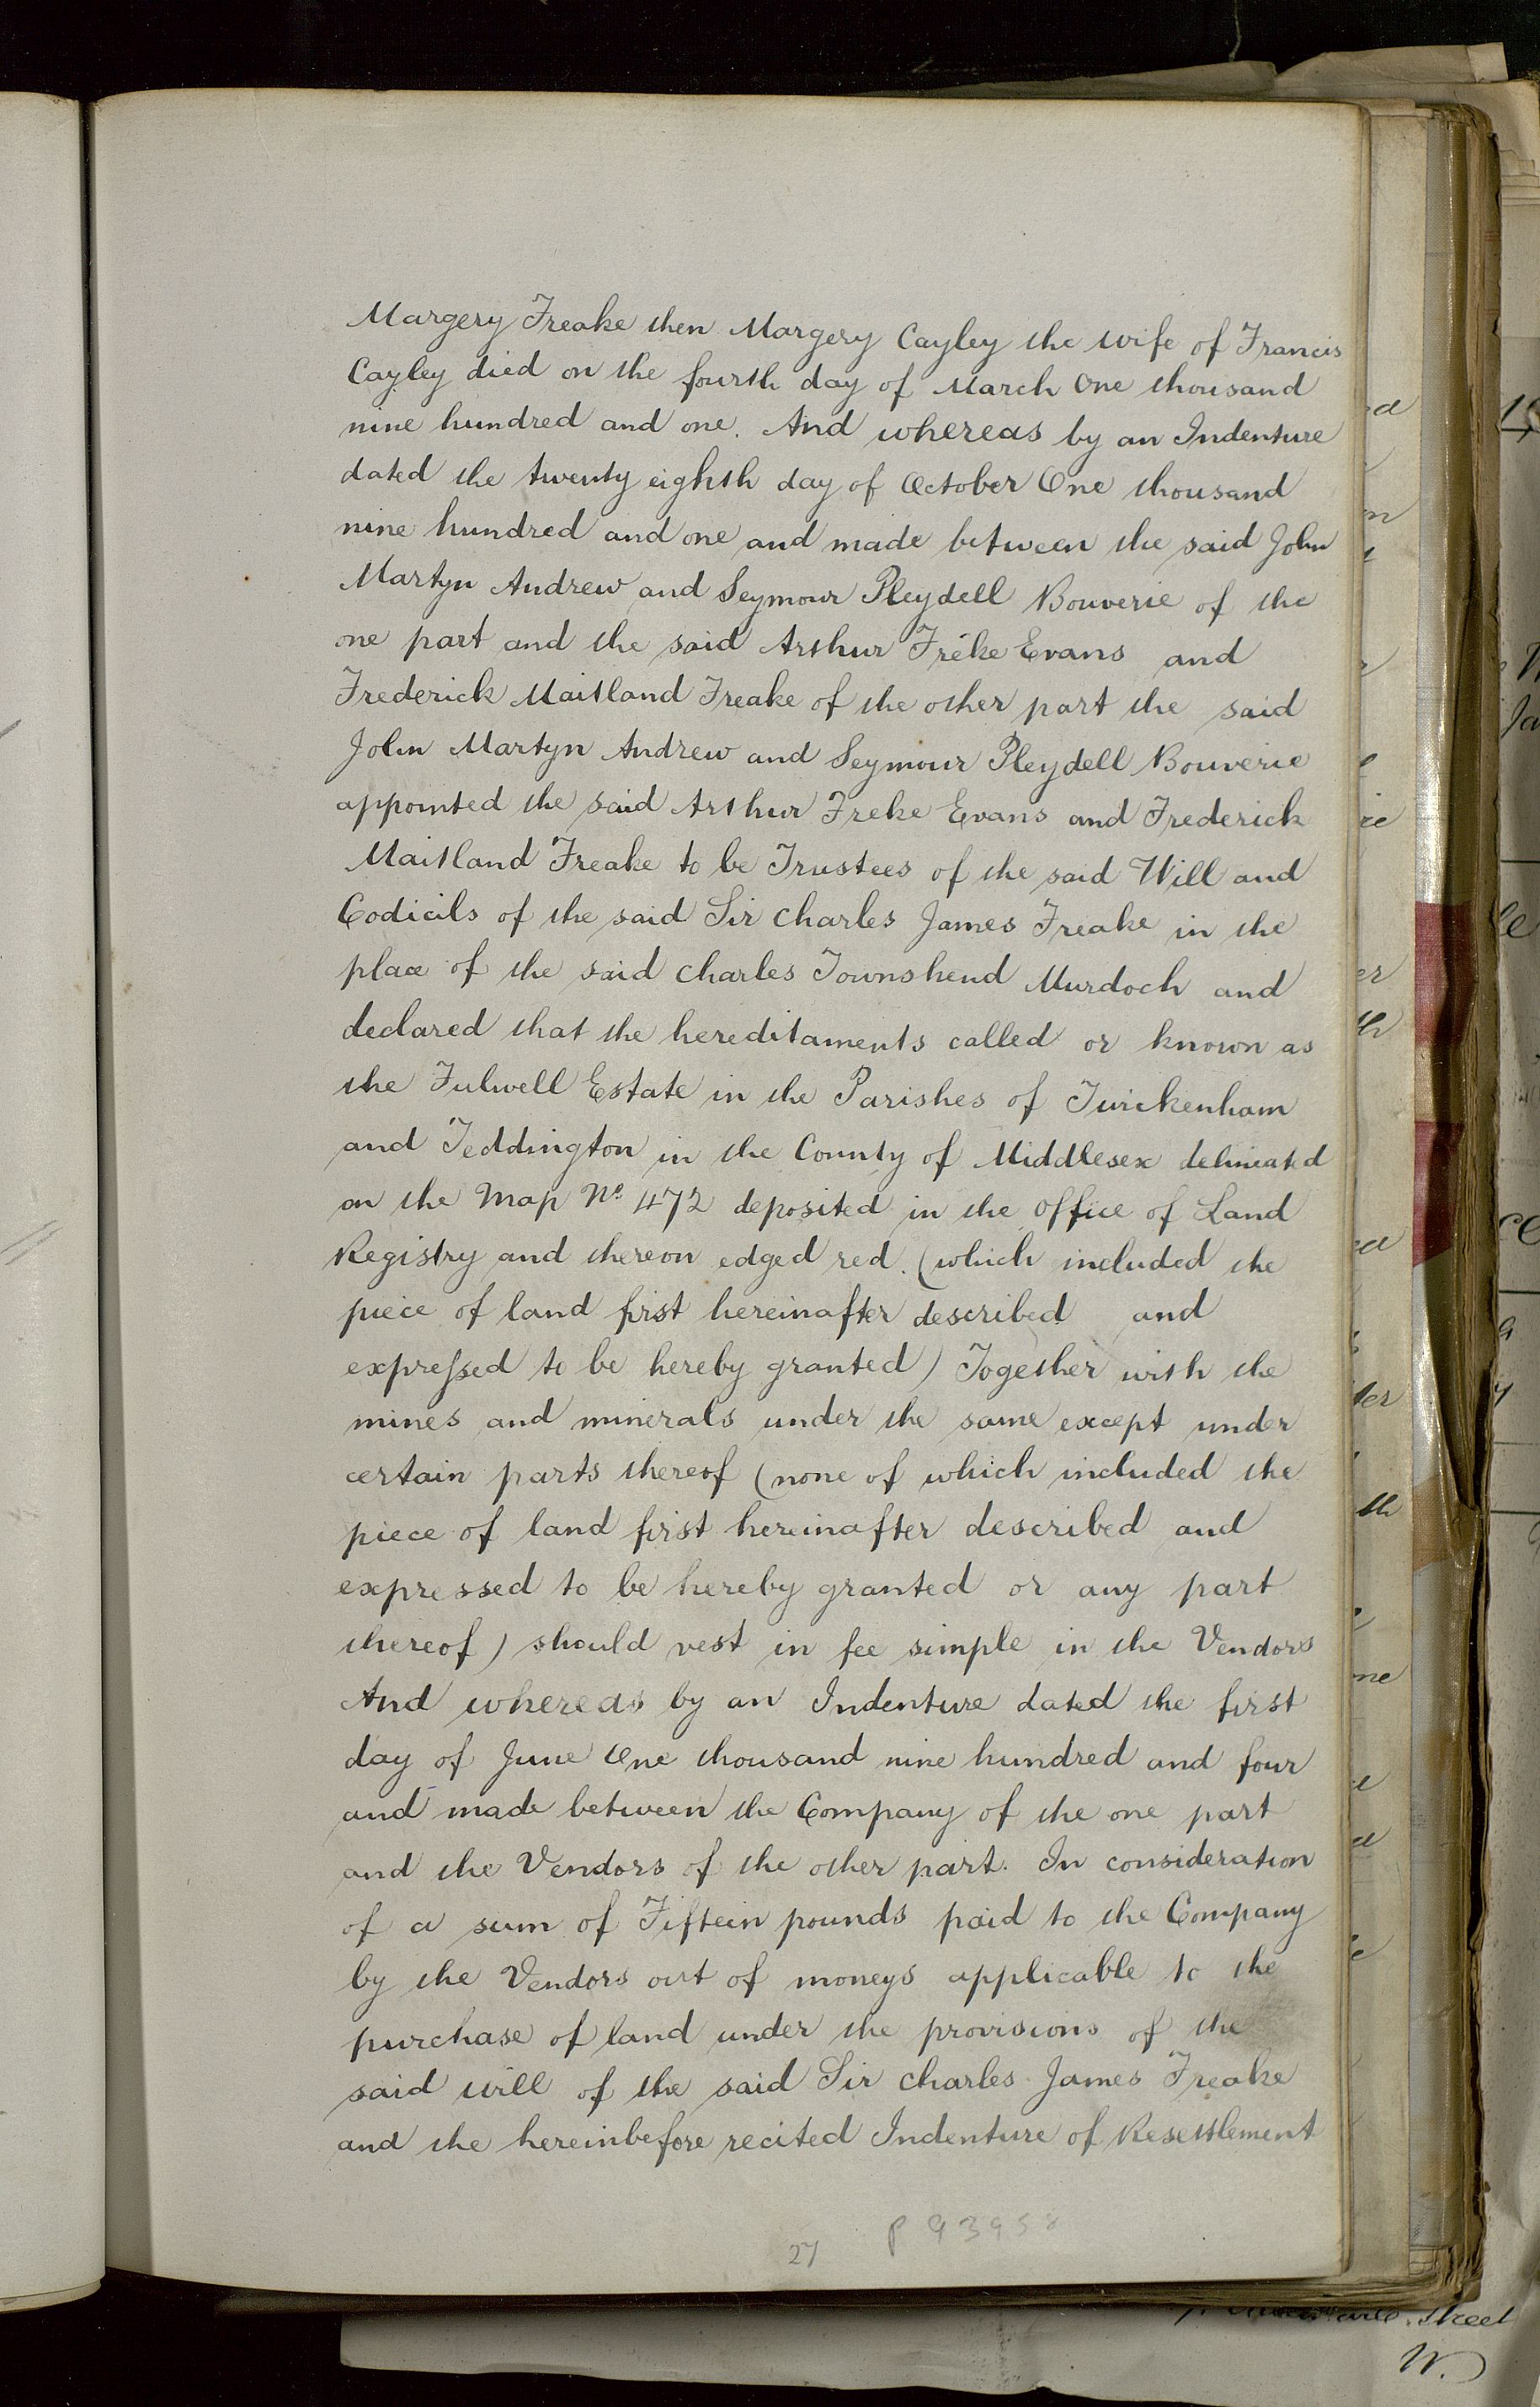 Margery Freake then Margery Cayley the wife of Francis
Cayley died on the fourth day of March One thousand
nine hundred and one. And whereas by an Indenture
dated the twenty eighth day of October One thousand
nine hundred and one and made between the said John
Martyn Andrew and Seymour Pleydell Bouverie of the
one part and the said Arthur Freke Evans and
Frederick Maitland Freake of the other part the said
John Martyn Andrew and Seymour Pleydell Bouverie
appointed the said Arthur Freke Evans and Frederick
Maitland Freake to be Trustees of the said Will and
Codicils of the said Sir Charles James Freake in the
place of the said Charles Townshend Murdoch and
declared that the hereditaments called or known as
the Fulwell Estate in the Parishes of Twickenham
and Teddington in the County of Middlesex delineated
on the Map No. 472 deposited in the Office of Land
Registry and thereon edged red. (which included the
piece of land first hereinafter described and
expressed to be hereby granted) Together with the
mines and minerals under the same except under
certain parts thereof (none of which included the
piece of land first hereinafter described and
expressed to be hereby granted or any part
thereof) should vest in fee simple in the Vendors
And whereas by an Indenture dated the first
day of June One thousand nine hundred and four
and made between the Company of the one part
and the Vendors of the other part. In consideration
of a sum of Fifteen pounds paid to the Company
by the Vendors out of moneys applicable to the
purchase of land under the provisions of the
said will of the said Sir Charles James Freake
and the hereinbefore recited Indenture of Resettlement
P 93958
27
street
W.)